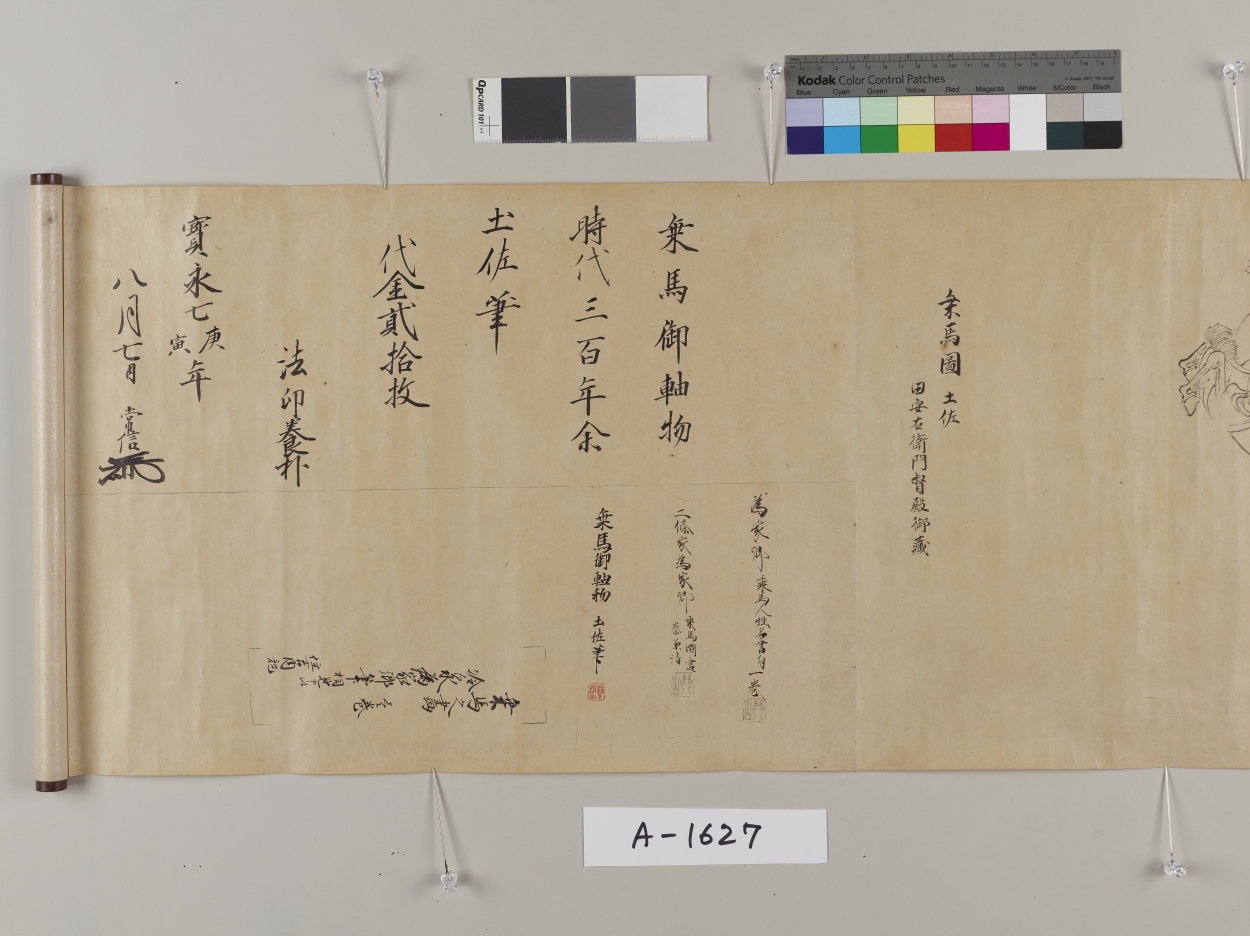 Kodak Color Control Patches
Blue Cyan Green Yellow Red Magenta White 3/Color Black
QPCARD 101
乗馬圖 土佐
田安右衛門督殿御藏
乗馬御軸物
時代三百年余
土佐筆
代金貳拾枚
法印養朴
寳永七庚寅年
八月七日 常信
為家卿乗馬人性名書付一巻
二條家為家卿乗馬圖
乗馬御軸物 土佐筆
A-1627